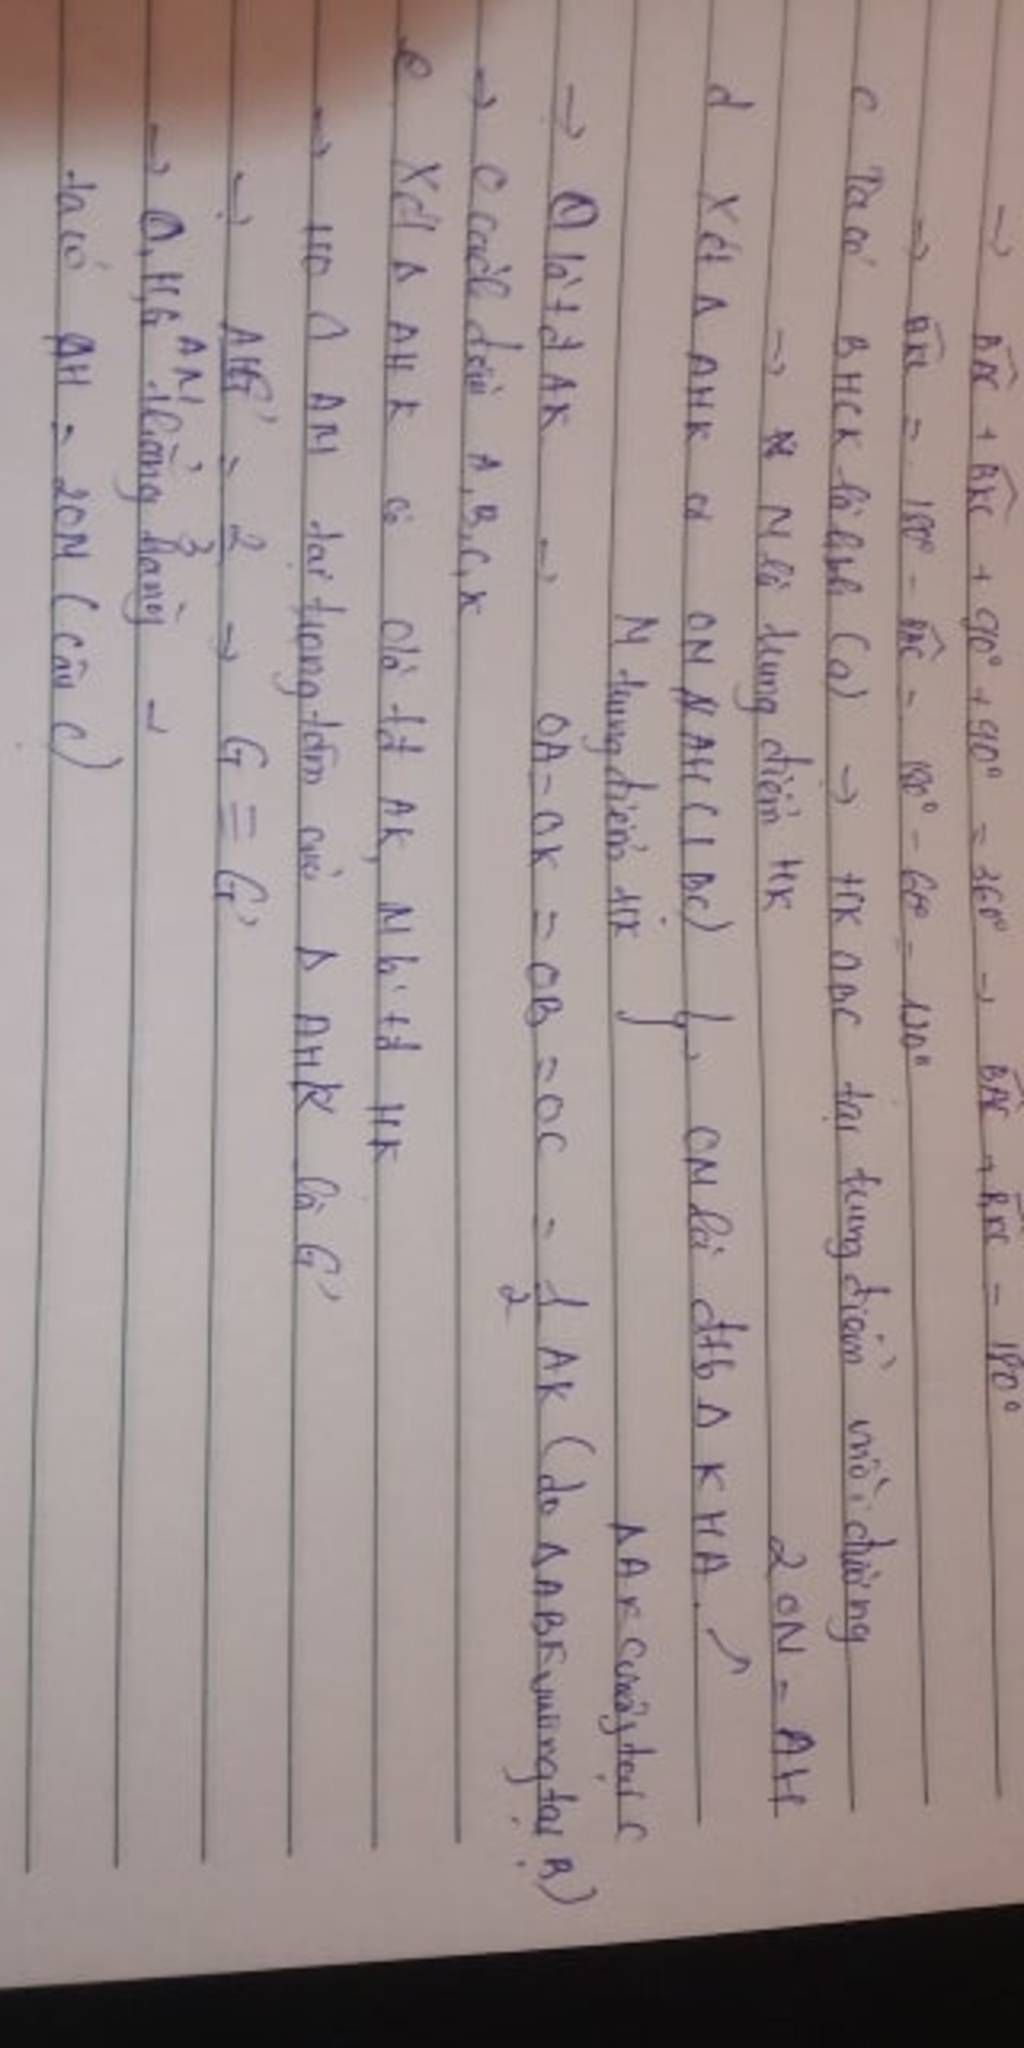 → BAC + BKC + 90° + 90° = 360° → BAC + BKC = 180°
→ BKC = 180° - BAC = 180° - 60° = 120°
c Ta có BHCK là hbh (a) → HK ∩ BC tại trung điểm mỗi đường
→ N là trung điểm HK 2ON = AH
d Xét Δ AHK có ON // AH (⊥ BC) } → ON là đtb Δ KHA
N trung điểm HK ΔAK vuông tại C
→ O là tđ AK → OA = OK = OB = OC = 1/2 AK (do ΔABK vuông tại B)
→ O cách đều A, B, C, K
e Xét Δ AHK có O là tđ AK, N là tđ HK
→ HO ∩ AN tại trọng tâm của Δ AHK là G'
→ AG'/AN = 2/3 → G ≡ G'
→ O, H, G thẳng hàng
ta có AH = 2ON (câu c)